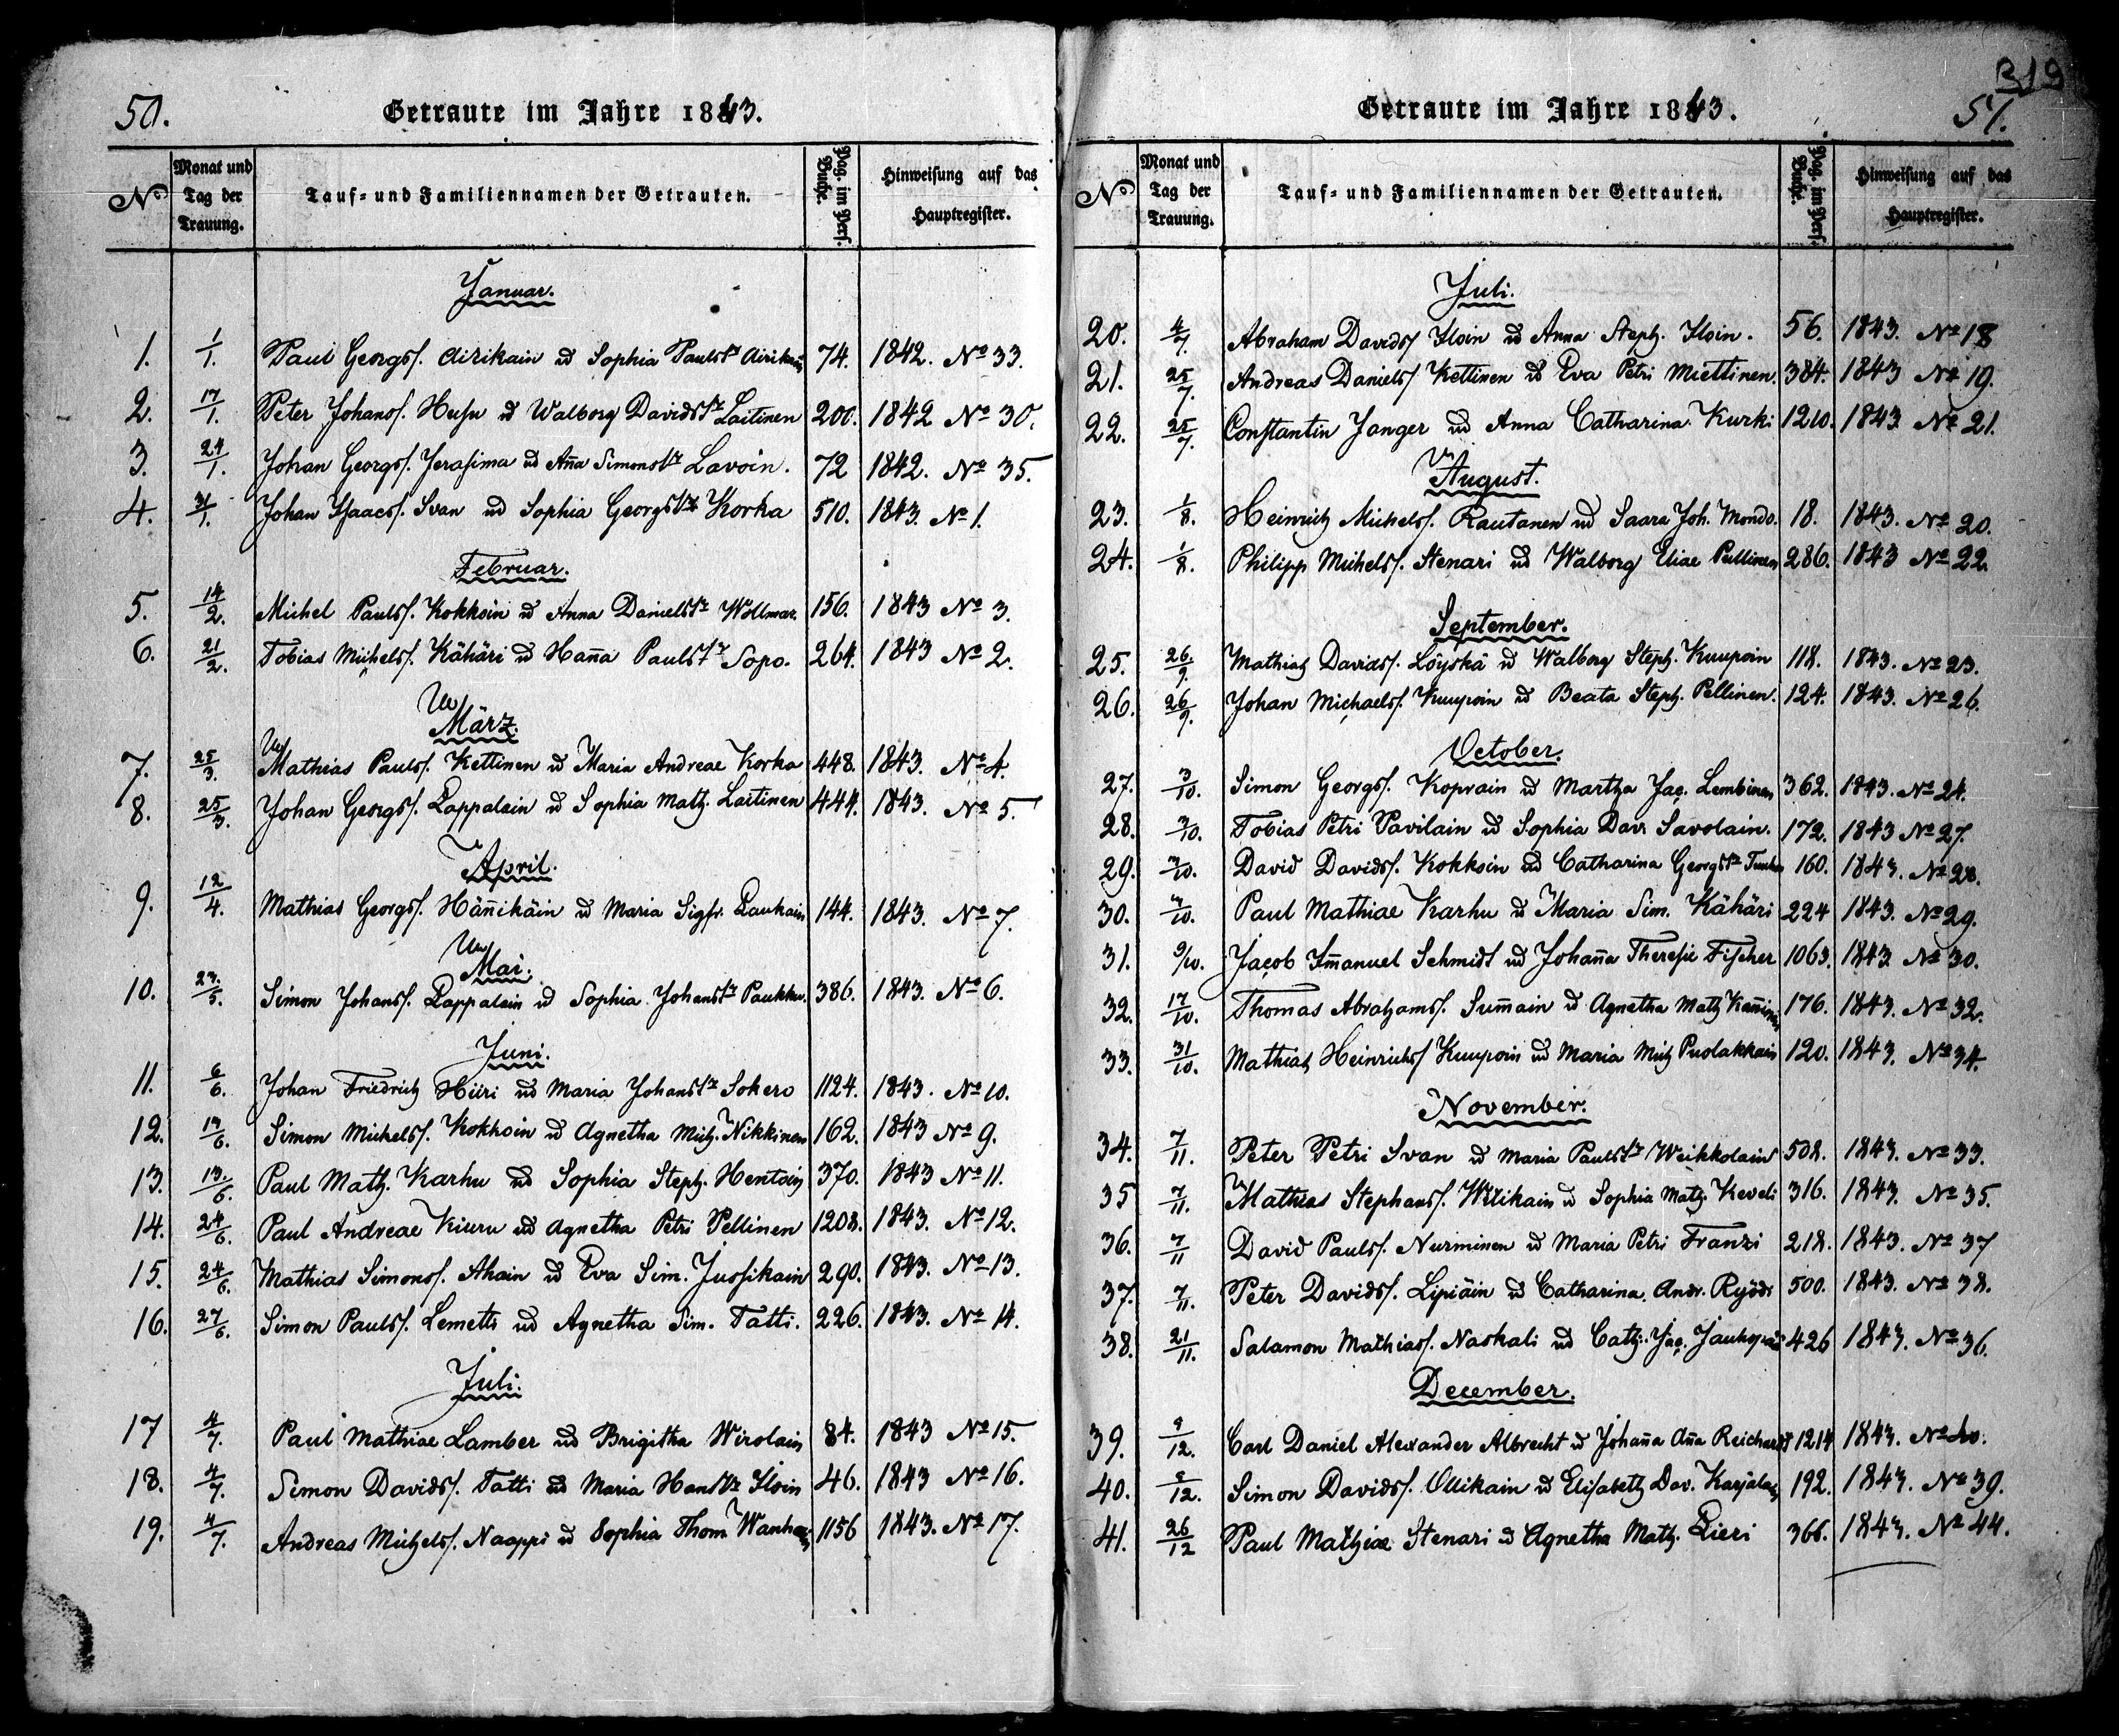 50.
Getraute im Jahre 1843.
No. Monat und Tag der Trauung. Tauf- und Familiennamen der Getrauten. Pag. im Pers. Buche. Hinweisung auf das Hauptregister.
Januar.
1. 1/1. Paul Georgs. Airikain ud Sophia Paulstr Airikain 74. 1842. No 33.
2. 17/1. Peter Johans. Huhu ud Walborg Davidstr Laitinen 200. 1842 No 30.
3. 24/1. Johan Georgs. Jerasima ud Anna Simonstr Lavoin. 72 1842. No 35.
4. 31/1. Johan Isaacs. Ivan ud Sophia Georgstr Korka 510. 1843. No 1.
Februar.
5. 14/2. Michel Pauls. Kokkoin ud Anna Danielstr Wollmar. 156. 1843 No 3.
6. 21/2. Tobias Michels. Kähäri ud Hanna Paulstr Sopo. 264. 1843 No 2.
März.
7. 25/3. Mathias Pauls. Kettinen ud Maria Andreae Korka 448. 1843. No 4.
8. 25/3. Johan Georgs. Lappalain ud Sophia Math. Laitinen 444. 1843. No 5.
April.
9. 12/4. Mathias Georgs. Hännikäin ud Maria Sigfr. Laukain 144. 1843. No 7.
Mai.
10. 23/5. Simon Johans. Lappalain ud Sophia Johanstr Paukku. 386. 1843. No 6.
Juni.
11. 6/6. Johan Friedrich Hiiri ud Maria Johanstr Sokero 1124. 1843. No 10.
12. 13/6. Simon Michels. Kokkoin ud Agnetha Mich. Nikkinen 162. 1843 No 9.
13. 13/6. Paul Math. Karhu ud Sophia Steph. Hentoin 370. 1843 No 11.
14. 24/6. Paul Andreae Kiuru ud Agnetha Petri Pellinen 1208. 1843. No 12.
15. 24/6. Mathias Simons. Ahain ud Eva Sim. Jussikain 290. 1843. No 13.
16. 27/6. Simon Pauls. Lemetti ud Agnetha Sim. Tatti. 226. 1843. No 14.
Juli.
17 4/7. Paul Mathiae Lamber ud Brigitha Wirolain 84. 1843 No 15.
18. 4/7. Simon Davids. Tatti ud Maria Hanstr Iloin 46. 1843 No 16.
19. 4/7. Andreas Michels. Naappi ud Sophia Thom Wanhain 1156 1843. No 17.
319
51.
Getraute im Jahre 1843.
No Monat und Tag der Trauung. Tauf- und Familiennamen der Getrauten. Pag. im Pers. Buche. Hinweisung auf das Hauptregister.
Juli.
20. 4/7. Abraham Davids Iloin ud Anna Steph. Iloin. 56. 1843. No 18
21. 25/7. Andreas Daniels Kettinen ud Eva Petri Miettinen. 384. 1843 No 19.
22. 25/7. Constantin Janger ud Anna Catharina Kurki 1210. 1843. No 21.
August.
23. 1/8. Heinrich Michels. Rautanen ud Saara Joh. Mondo. 18. 1843. No 20.
24. 1/8. Philipp Michels. Stenari ud Walborg Eliae Pullinen 286. 1843 No 22.
September.
25. 26/9. Mathias Davids. Löyskä ud Walborg Steph. Kuupoin 118. 1843. No 23.
26. 26/9. Johan Michaels. Kuupoin ud Beata Steph. Pellinen. 124. 1843. No 26.
October.
27. 3/10. Simon Georgs. Koprain ud Martha Jac. Lembinen 362. 1843. No 24.
28. 3/10. Tobias Petri Pavilain ud Sophia Dav. Savolain. 172. 1843 No 27.
29. 3/10. David Davids. Kokkoin ud Catharina Georgstr 160. 1843. No 28.
30. 3/10. Paul Mathiae Karhu ud Maria Sim. Kähäri 224 1843. No 29.
31. 9/10. Jacob Immanuel Schmidt ud Johanna Theresie Fischer 1063. 1843. No 30.
32. 17/10. Thomas Abrahams. Summain ud Agnetha Math 176. 1843. No 32.
33. 31/10. Mathias Heinrichs Kuupoin ud Maria Mich Puolakkain 120. 1843. No 34.
November.
34. 7/11. Peter Petri Ivan ud Maria Paulstr Weikkolain 508. 1843. No 33.
35 7/11. Mathias Stephans. Wirikain ud Sophia Math Keveli 316. 1843. No 35.
36. 7/11 David Pauls. Nurminen ud Maria Petri Franzi 218. 1843. No 37
37. 7/11. Peter Davids. Lipiäin ud Catharina Andr. Ryödi 500. 1843. No 38.
38. 21/11. Salamon Mathias. Naskali ud Cath. Jac. 426 1843. No 36.
December.
39. 9/12. Carl Daniel Alexander Albrecht ud Johanna Anna Reichardt 1214 1843. No 40.
40. 5/12. Simon Davids. Ollikain ud Elisabeth Dav. Karjalain 192. 1843. No 39.
41. 26/12 Paul Mathiae Stenari ud Agnetha Math. Lieri 366. 1843. No 44.